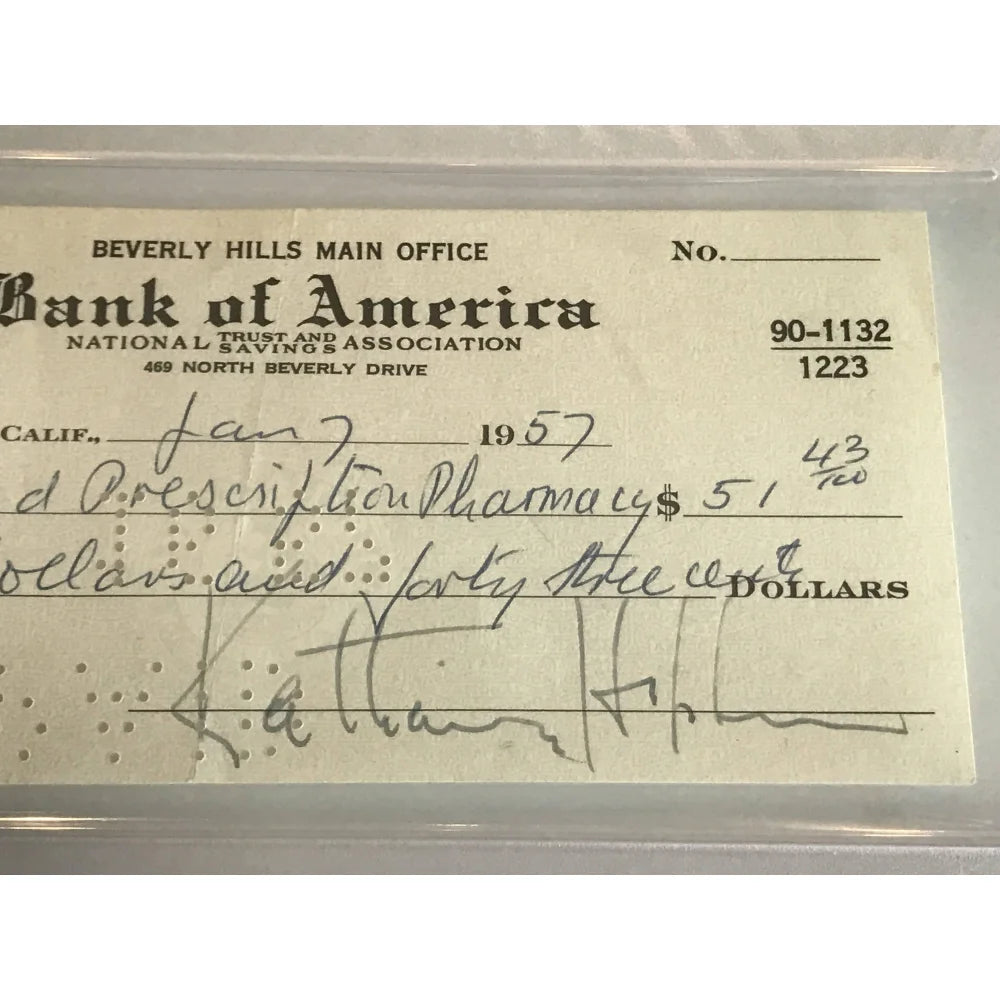 BEVERLY HILLS MAIN OFFICE No.
Bank of America
NATIONAL TRUST AND SAVINGS ASSOCIATION
90-1132
1223
469 NORTH BEVERLY DRIVE
CALIF., Jan 7 1957
d Prescription Pharmacy $ 51 43/100
ollars and forty three cent DOLLARS
Katharine Hepburn